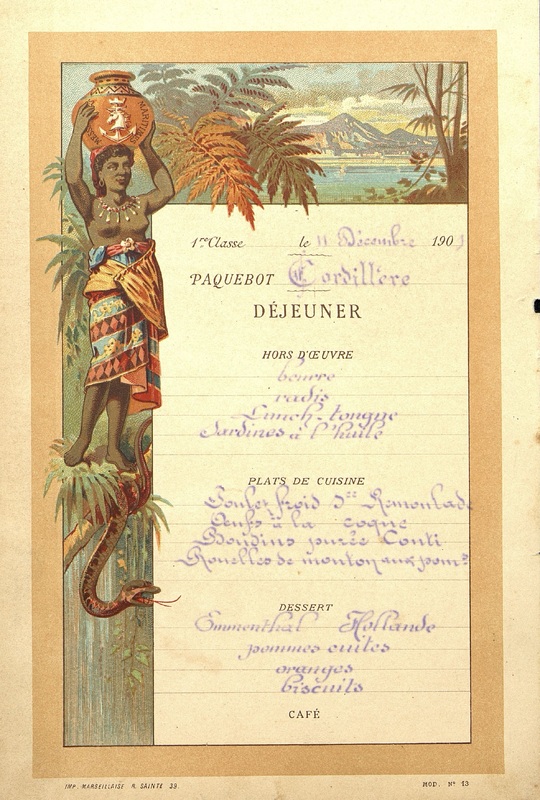 MARITIMES
1re Classe le 11 Décembre 190
PAQUEBOT Cordillère
DÉJEUNER
HORS D'ŒUVRE
beurre
radis
Lunch-tongue
Sardines à l'huile
PLATS DE CUISINE
Poulet froid Sce Remoulade
Œufs à la coque
Boudins purée Conti
Rouelles de mouton aux poms
DESSERT
Emmenthal Hollande
pommes cuites
oranges
biscuits
CAFÉ
IMP. MARSEILLAISE R. SAINTE 39.
MOD. N° 13